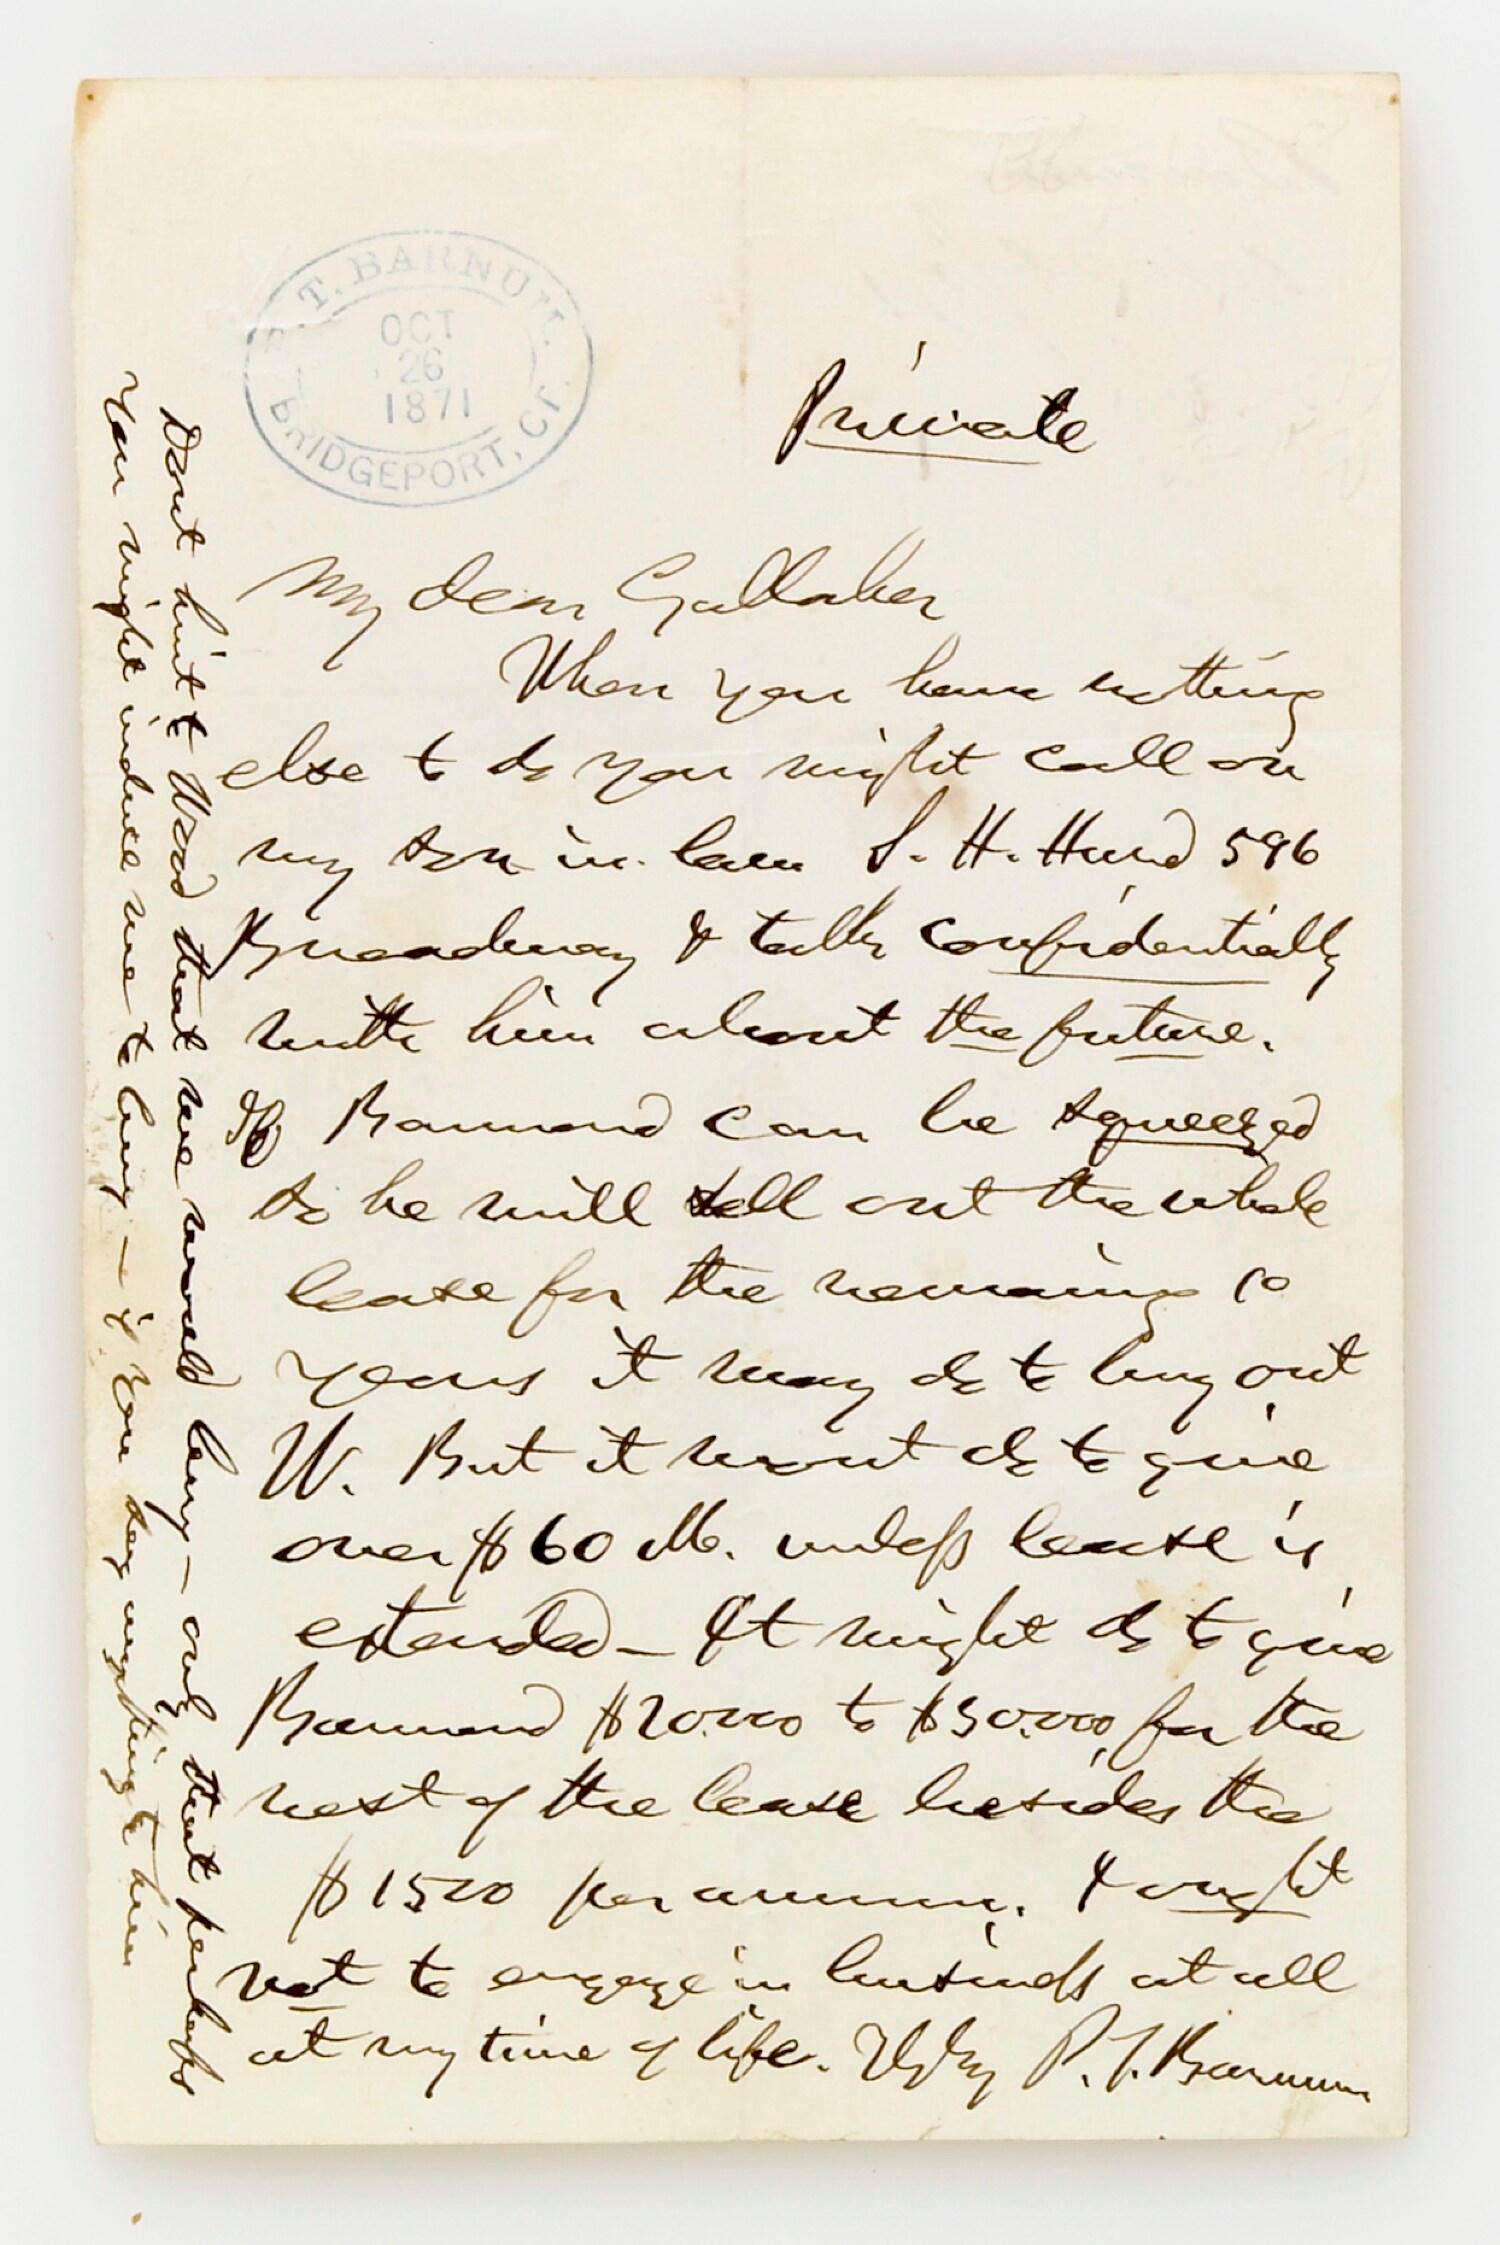 P. T. BARNUM.
OCT
26
1871
BRIDGEPORT, CT.
Private
My dear Gallaher
When you have nothing
else to do you might call on
my son in law S. H. Hurd 596
Broadway & talk confidentially
with him about the future.
If Bamond can be squeezed
so he will sell out the whole
lease for the remaing 10
years it may do to buy out
W. But it wont do to give
over $60 M. unless lease is
extended — It might do to give
Bamond $20.000 to $30.000, for the
rest of the lease besides the
$1500 per annum. I ought
not to engage in business at all
at my time of life. Tly Yrs P. T. Barnum
Dont hint to Wood that we would buy — only that perhaps
You might induce me to buy — if you say anything to him